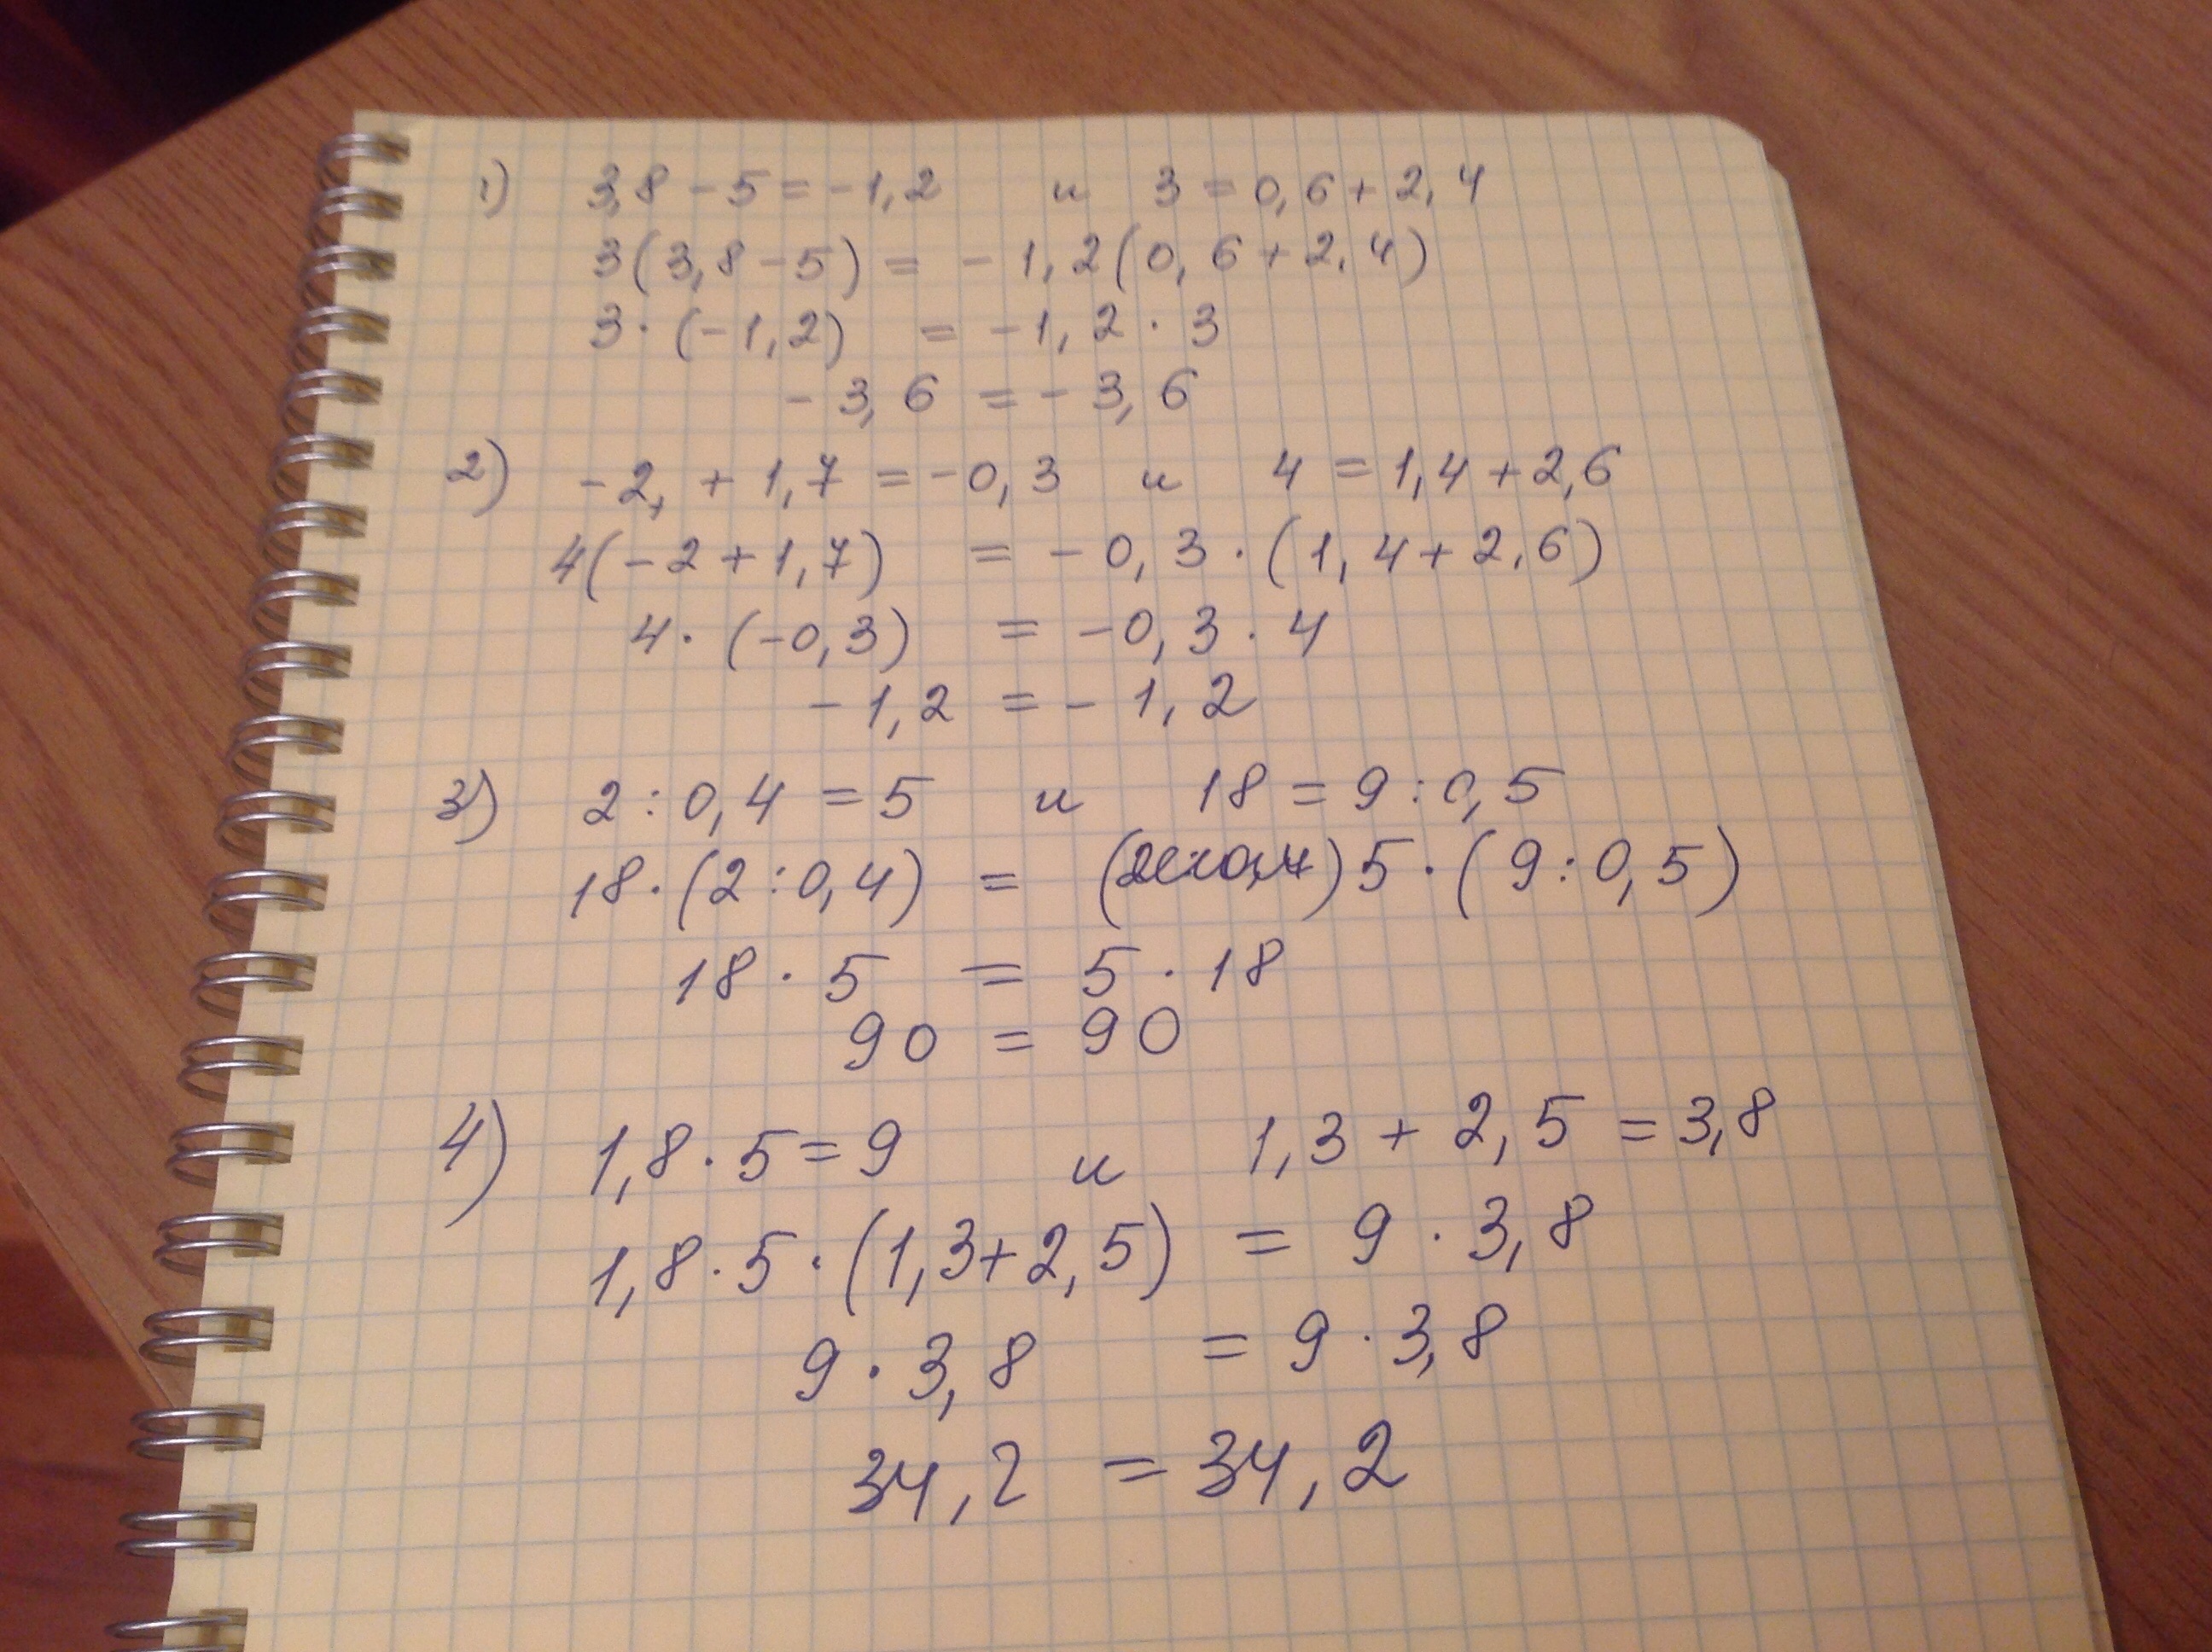 1) 3,8 - 5 = - 1,2 и 3 = 0,6 + 2,4
3(3,8 - 5) = - 1,2(0,6 + 2,4)
3 · (-1,2) = -1,2 · 3
- 3,6 = - 3,6
2) - 2, + 1,7 = -0,3 и 4 = 1,4 + 2,6
4(-2 + 1,7) = - 0,3 · (1,4 + 2,6)
4 · (-0,3) = -0,3 · 4
- 1,2 = - 1,2
3) 2 : 0,4 = 5 и 18 = 9 : 0,5
18 · (2 : 0,4) = 5 · (9 : 0,5)
18 · 5 = 5 · 18
90 = 90
4) 1,8 · 5 = 9 и 1,3 + 2,5 = 3,8
1,8 · 5 · (1,3 + 2,5) = 9 · 3,8
9 · 3,8 = 9 · 3,8
34,2 = 34,2